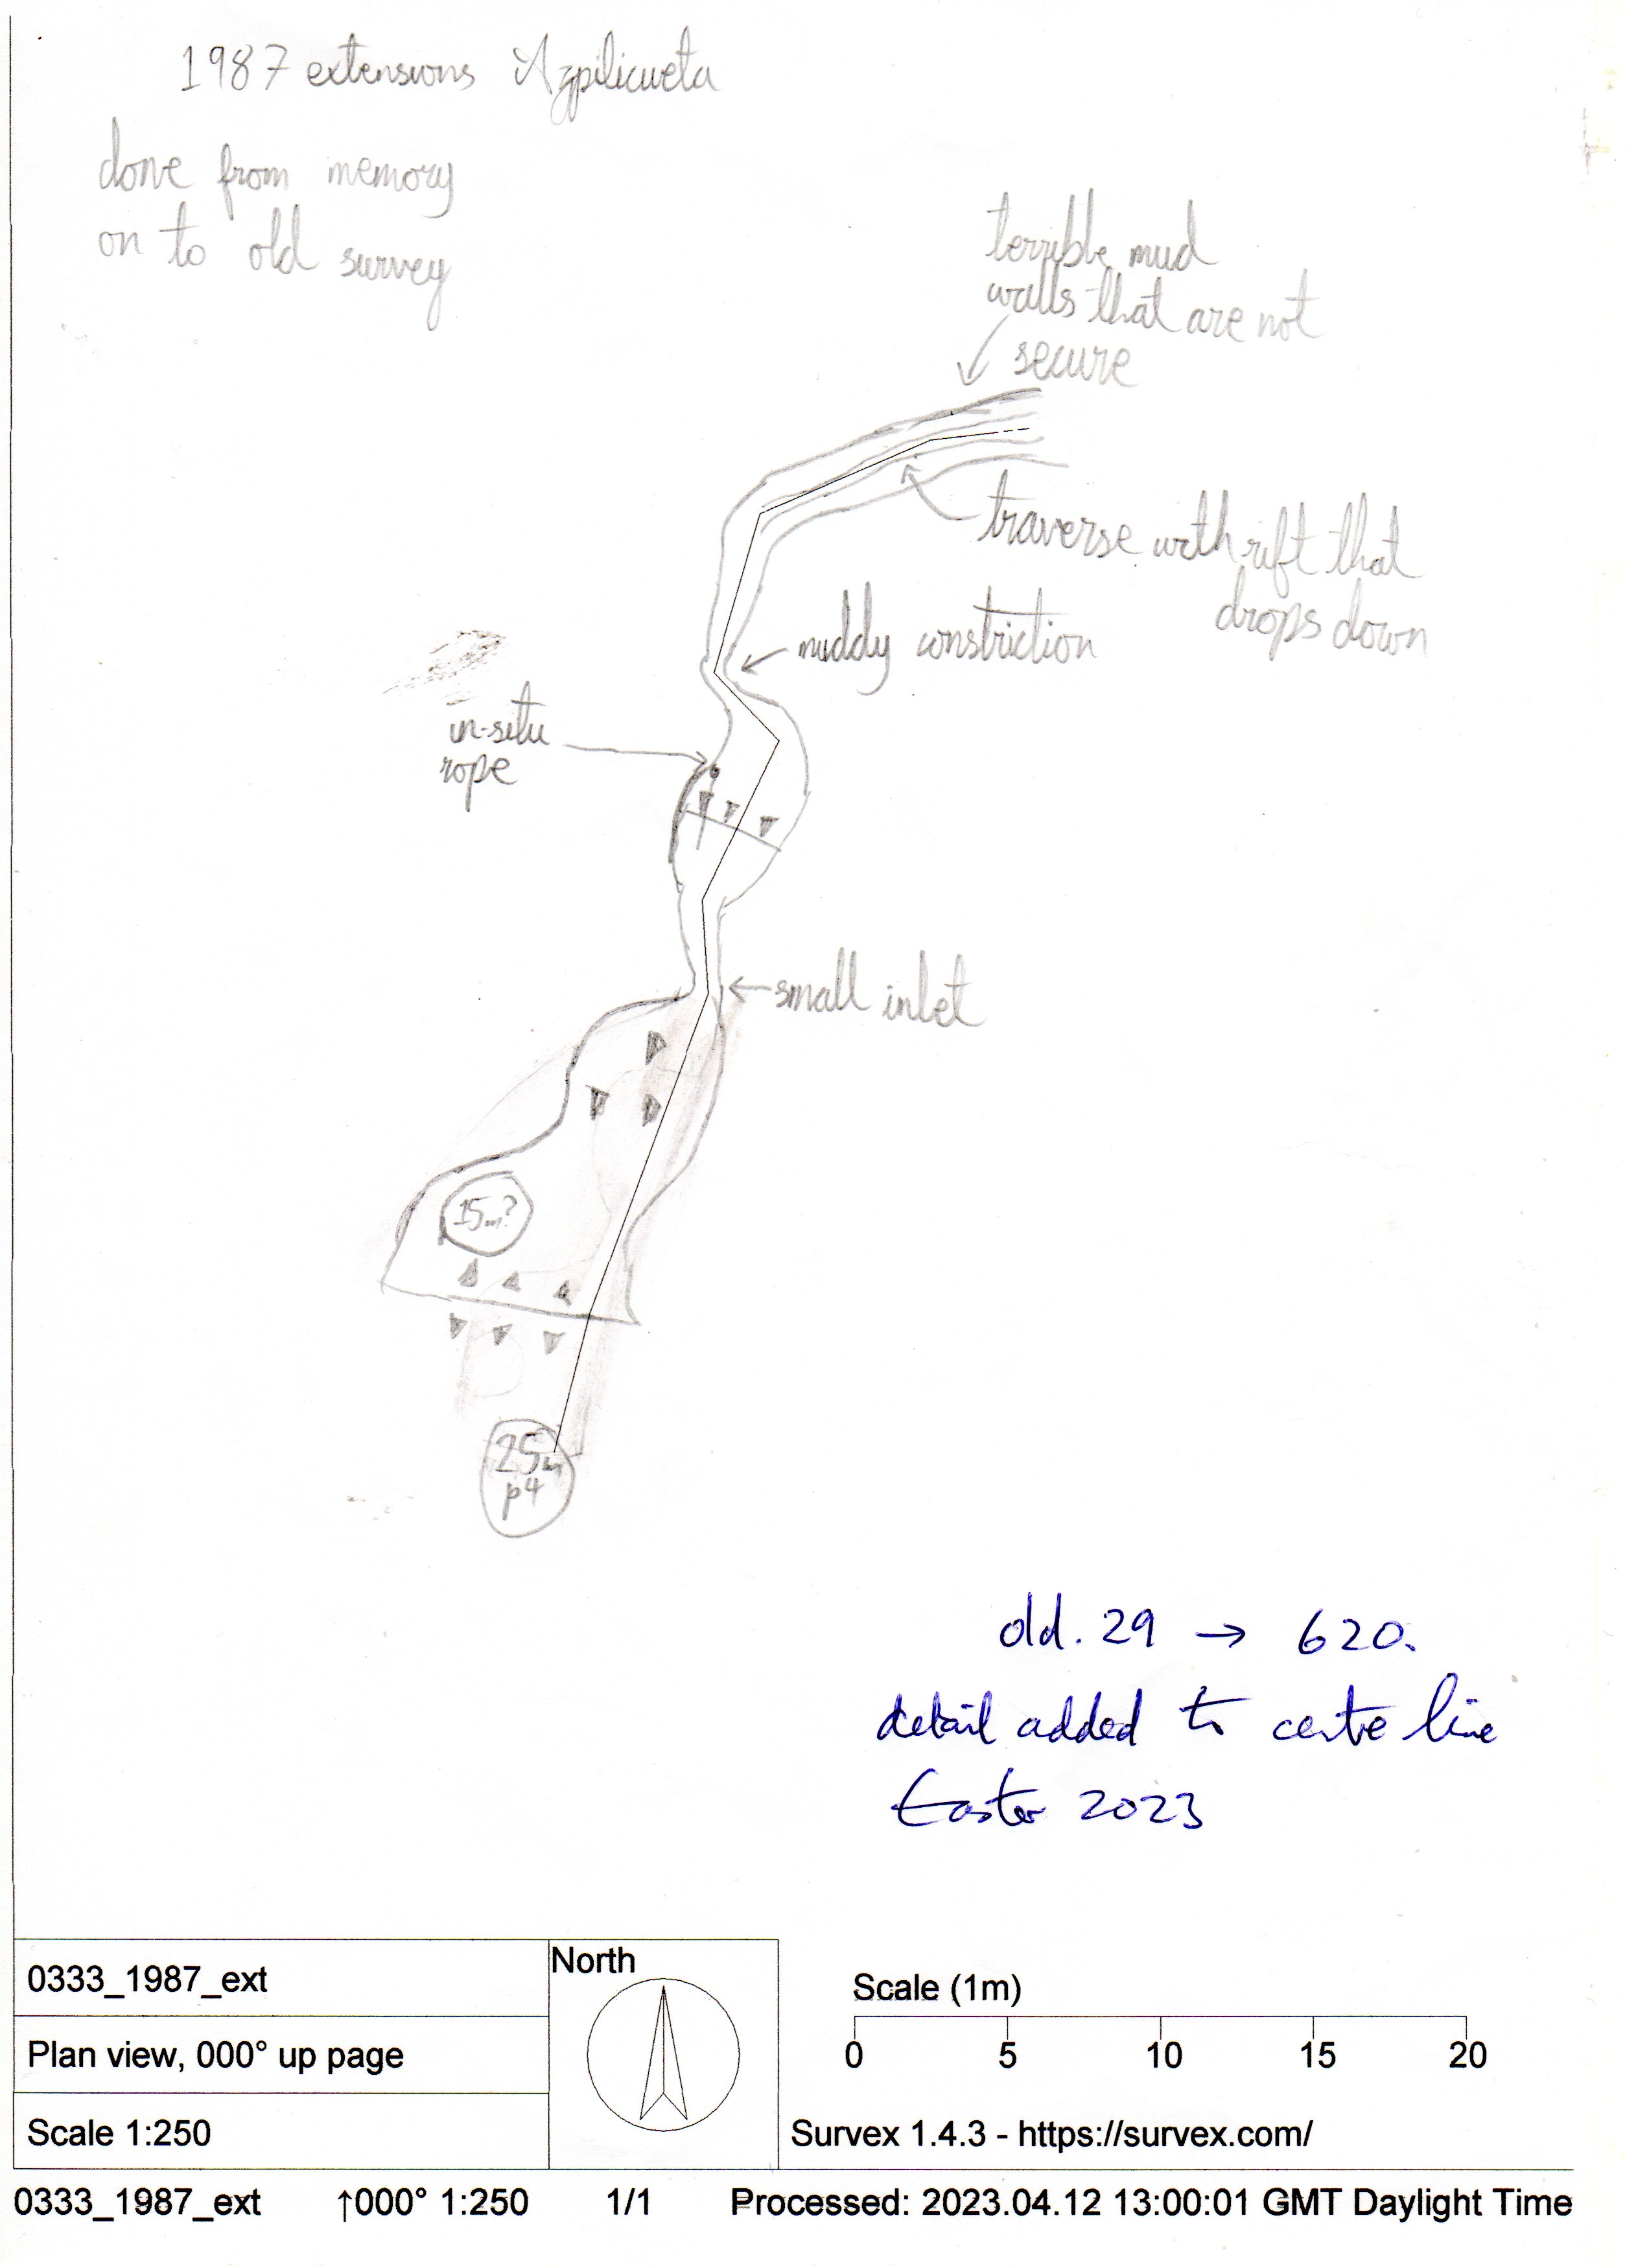 1987 extensions Azpilicueta
done from memory
on to old survey
terrible mud
walls that are not
secure
traverse with rift that
drops down
muddy constriction
in-situ
rope
small inlet
15m?
25m
p4
old. 29 → 620.
detail added to centre line
Easter 2023
0333_1987_ext
Plan view, 000° up page
Scale 1:250
North
Scale (1m)
0 5 10 15 20
Survex 1.4.3 - https://survex.com/
0333_1987_ext ↑000° 1:250 1/1 Processed: 2023.04.12 13:00:01 GMT Daylight Time